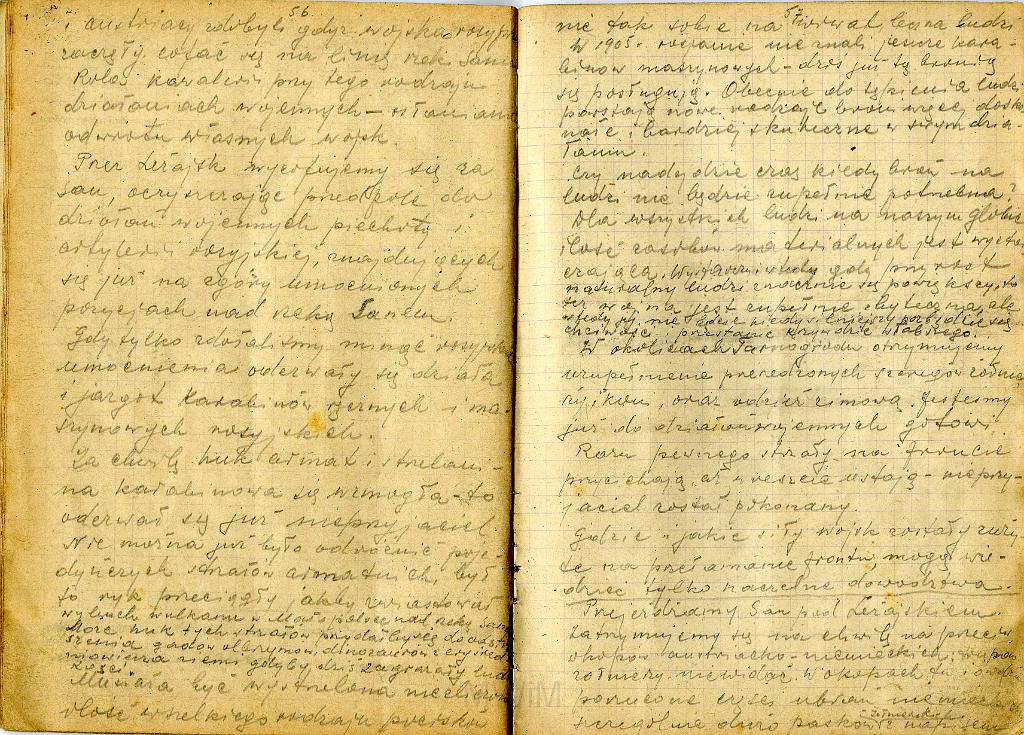 56
i austriacy zdobyli gdyż wojska rosyj
zaczęły cofać się na linię rzeki Sanu
Rolaś kawalerii przy tego rodzaju
działaniach wojennych – osłaniani
odwrotu własnych wojsk.
Przez Leżajsk wycofujemy się za
San, oczyszczając przedpole do
działań wojennych piechoty i
artylerii rosyjskiej, znajdujących
się już na zgóry umocnionych
pozycjach nad rzeką Sanem.
Gdy tylko zdołaliśmy minąć rosyjskie
umocnienia oderwały się działa
i jazgot karabinów ręcznych i ma-
szynowych rosyjskich.
Za chwilę huk armat i strzelani-
na karabinowa się wzmogła – to
oderwał się już nieprzyjaciel.
Nie można już było odróżnić poje-
dynczych strzałów armatnich, był
to ryk przeciągły jakby zwiastował
wybuch wulkanu w Małopolsce nad rzeką San
Może huk tych strzałów przydałby się do odstra
szenia gadów olbrzymów dinozaurów
ziemi gdyby dziś zagrażały lud
kości
Musiała być wystrzelona niezliczona
ilość wszelkiego rodzaju pocisków
57
nie tak sobie na wiwat lecz na ludzi
W 1905 r. rosjanie nie znali jeszcze kara-
binów maszynowych – dziś już tą bronią
się posługują. Obecnie do tępienia ludzi
powstają nowe rodzaje broni więcej dosko
nałe i bardziej skuteczne w swym dzia-
łaniu.
Czy nadejdzie czas kiedy broń na
ludzi nie będzie zupełnie potrzebna?
Dla wszystkich ludzi na naszym globie
ilość zasobów materialnych jest wystar
czająca. Wystarczy i wtedy gdy przyrost
naturalny ludzi znacznie się powiększy, to
też wojna jest zupełnie zbyteczna, ale
wtedy jej nie będzie kiedy silniejszy pozbędzie się
chciwości i przestanie krzywdzić słabszego.
W okolicach Tarnogrodu otrzymujemy
uzupełnienie przerzedzonych szeregów żołnie
rzy i koni, oraz odzież zimową. Jesteśmy
już do działań wojennych gotowi.
Razu pewnego strzały na froncie
przycichają, aż wreszcie ustają – nieprzy-
jaciel został pokonany.
Gdzie i jakie siły wojsk zostały zuży
te na przełamanie frontu, mogą wie-
dzieć tylko naczelne dowództwa.
Przejeżdżamy San pod Leżajskiem.
Zatrzymujemy się na chwilę na przeciw
okopów austriacko-niemieckich,
żołnierzy nie widać. W okopach tu i ówdzie
porzucone części ubrań niemieckich
żołnierskich
szczególnie dużo pasków z napisem